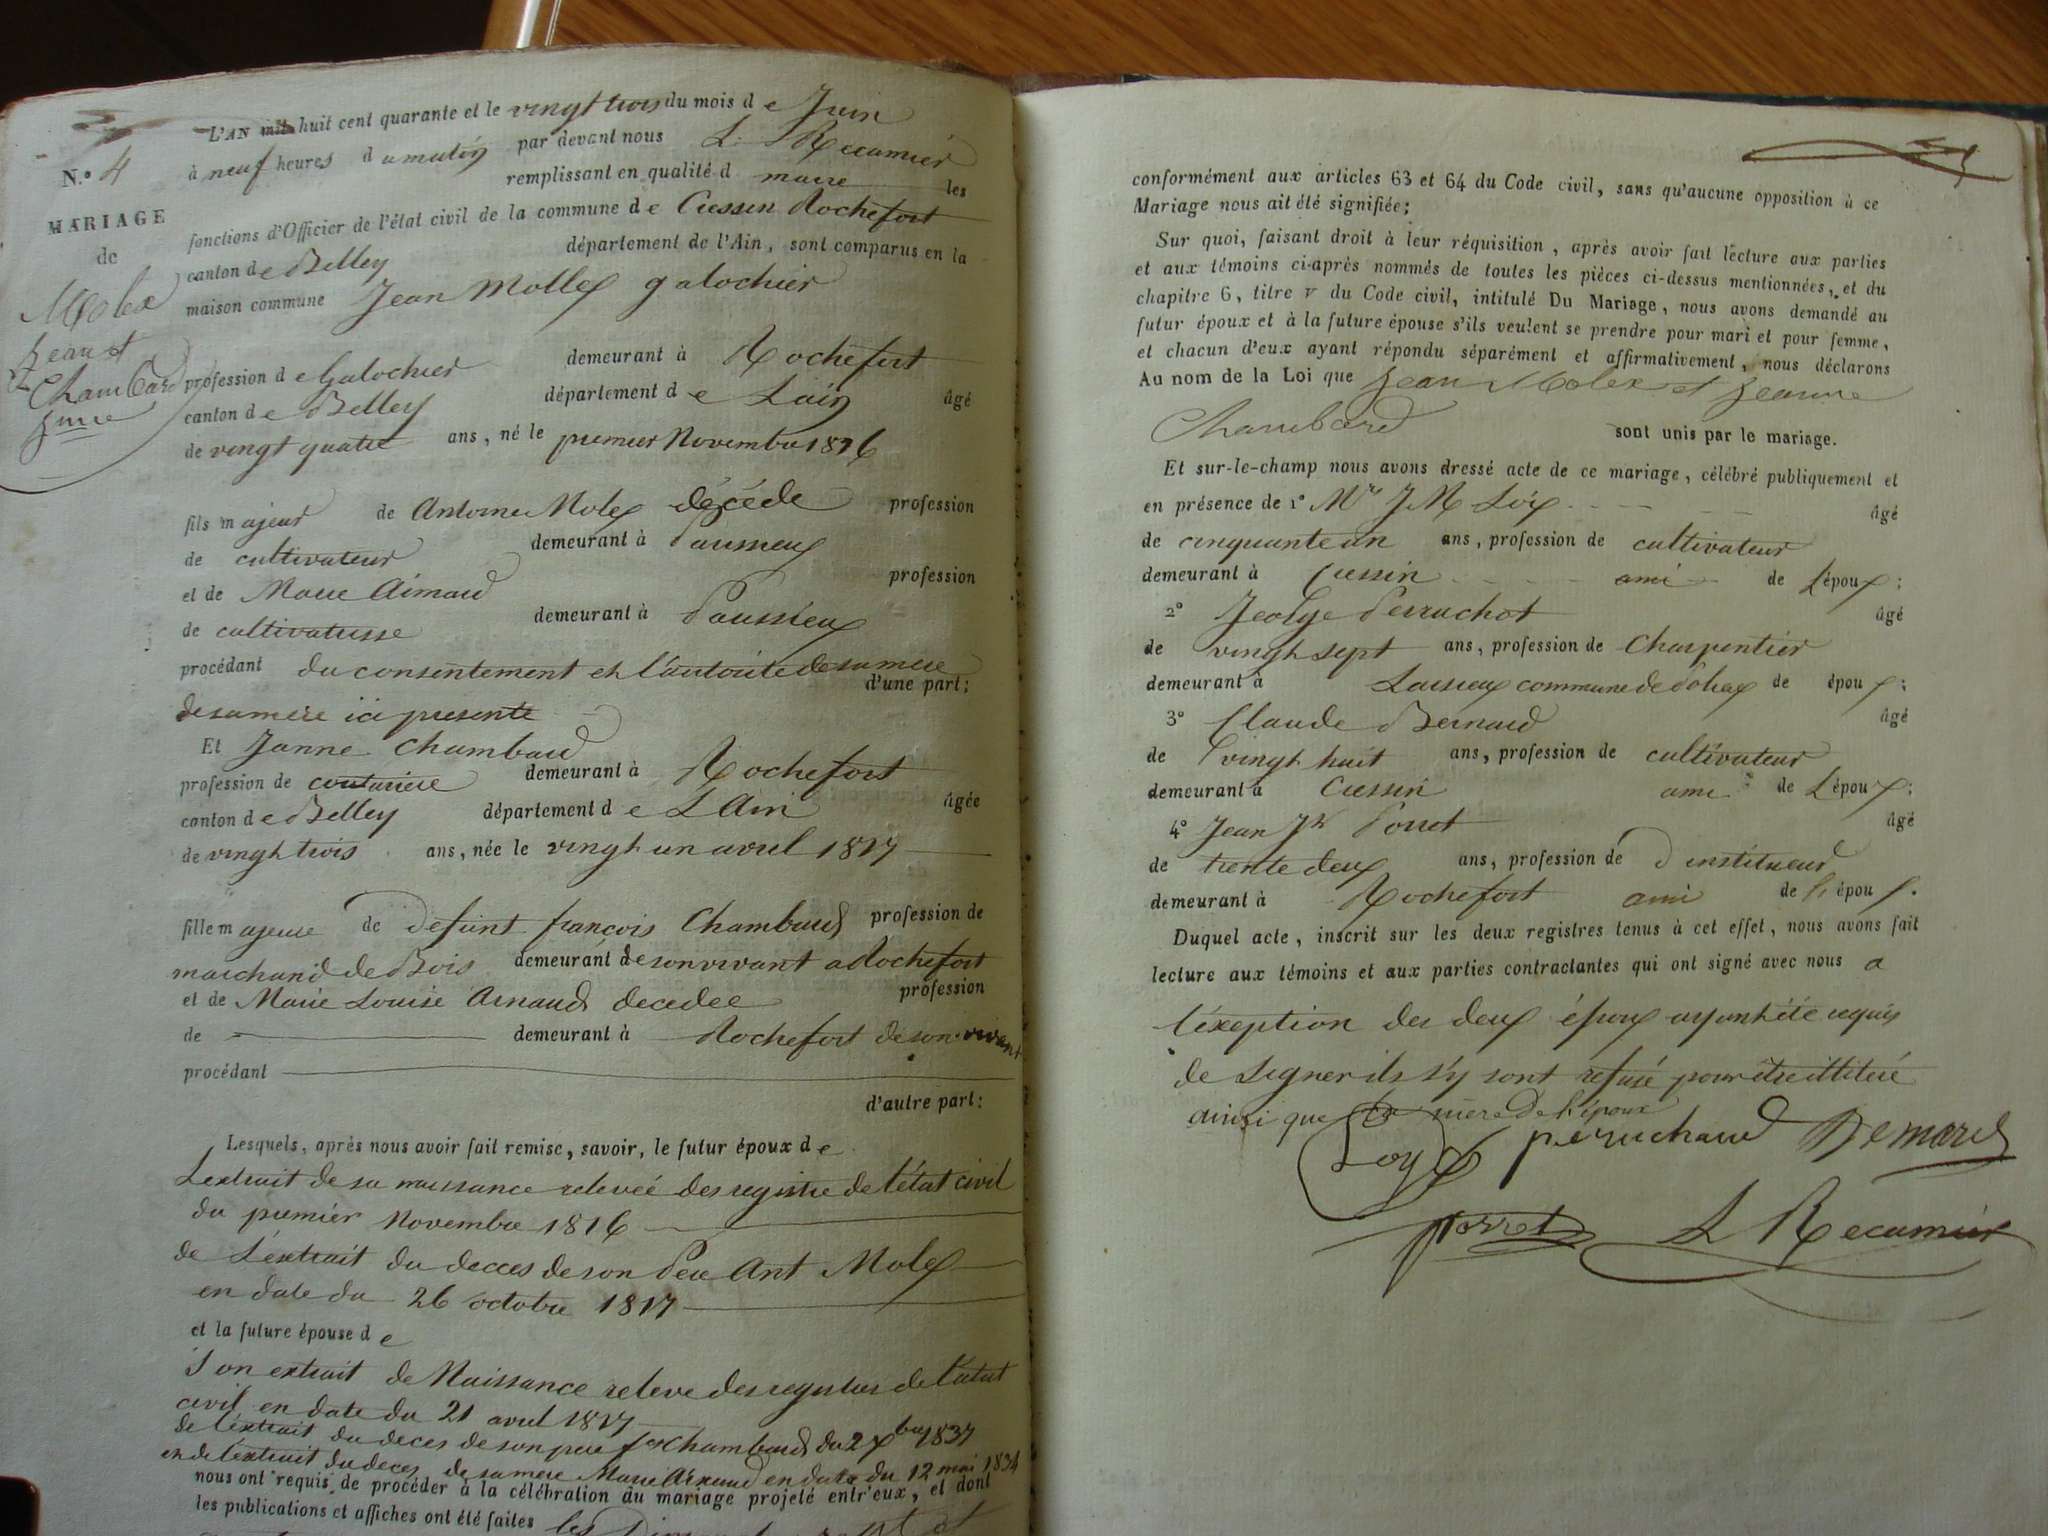 L'AN mil huit cent quarante et le vingt trois du mois d e Juin
à neuf heures d u matin par devant nous L. Recamier
remplissant en qualité d maire les
fonctions d'Officier de l'état civil de la commune d e Cressin Rochefort
canton d e Belley département de l'Ain, sont comparus en la
maison commune Jean Mollex galochier
N.º 4
MARIAGE
de
Molex
Jean et
Chambard
Jnne
profession d e Galochier demeurant à Rochefort
canton d e Belley département d e Lain âgé
de vingt quatre ans, né le premier Novembre 1816
fils majeur de Antoine Molex décéde profession
de cultivateur demeurant à
et de Marie Aimard profession
de cultivatrisse demeurant à
procédant du consentement et l'autorite de sa mere
d'une part;
de sa mere ici presente
Et Janne Chambard
profession de couturiere demeurant à Rochefort
canton d e Belley département d e L Ain âgée
de vingt trois ans, née le vingt un avril 1817
fille majeure de defunt françois Chambard profession de
marchand de Bois demeurant de son vivant a Rochefort
et de Marie Louise Arnaud decedee profession
de demeurant à Rochefort de son vivant
procédant
d'autre part:
Lesquels, après nous avoir fait remise, savoir, le futur époux d e
Lextrait de sa naissance releveé des registre de l'état civil
du premier Novembre 1816
de L'extrait du decces de son Pere Ant Molex
en date du 26 octobre 1817
et la future épouse d e
Son extrait de Naissance releve des registres de l'état
civil en date du 21 avril 1817
de l'extrait du deces de son pere fois Chambard du 2 xbre 1837
en de l'extrait du deces de sa mere Marie Arnaud en date du 12 mai 1834
nous ont requis de procéder à la célébration du mariage projeté entr'eux, et dont
les publications et affiches ont été faites les
conformément aux articles 63 et 64 du Code civil, sans qu'aucune opposition à ce
Mariage nous ait été signifiée;
Sur quoi, faisant droit à leur réquisition, après avoir fait lecture aux parties
et aux témoins ci-après nommés de toutes les pièces ci-dessus mentionnées, et du
chapitre 6, titre v du Code civil, intitulé Du Mariage, nous avons demandé au
futur époux et à la future épouse s'ils veulent se prendre pour mari et pour femme,
et chacun d'eux ayant répondu séparément et affirmativement, nous déclarons
Au nom de la Loi que Jean Molex et Jeanne
Chambard sont unis par le mariage.
Et sur-le-champ nous avons dressé acte de ce mariage, célébré publiquement et
en présence de 1º Mr J M Loÿ âgé
de cinquante un ans, profession de cultivateur
demeurant à Cressin ami de L'époux;
2º Jeorge Perruchot âgé
de vingt sept ans, profession de Charpentier
demeurant à commune de de époux;
3º Claude Bernard âgé
de vingt huit ans, profession de cultivateur
demeurant à Cressin ami de L'époux;
4º Jean Jh Porret âgé
de trente deux ans, profession de d institueur
demeurant à Rochefort ami de l'époux.
Duquel acte, inscrit sur les deux registres tenus à cet effet, nous avons fait
lecture aux témoins et aux parties contractantes qui ont signé avec nous a
l'éxeption des deux époux ayant été requis
de signer ils s'y sont refusé pour être illiteré
ainsi que la mere de l'époux
Loy péruchaud Bernard
porret L Recamier